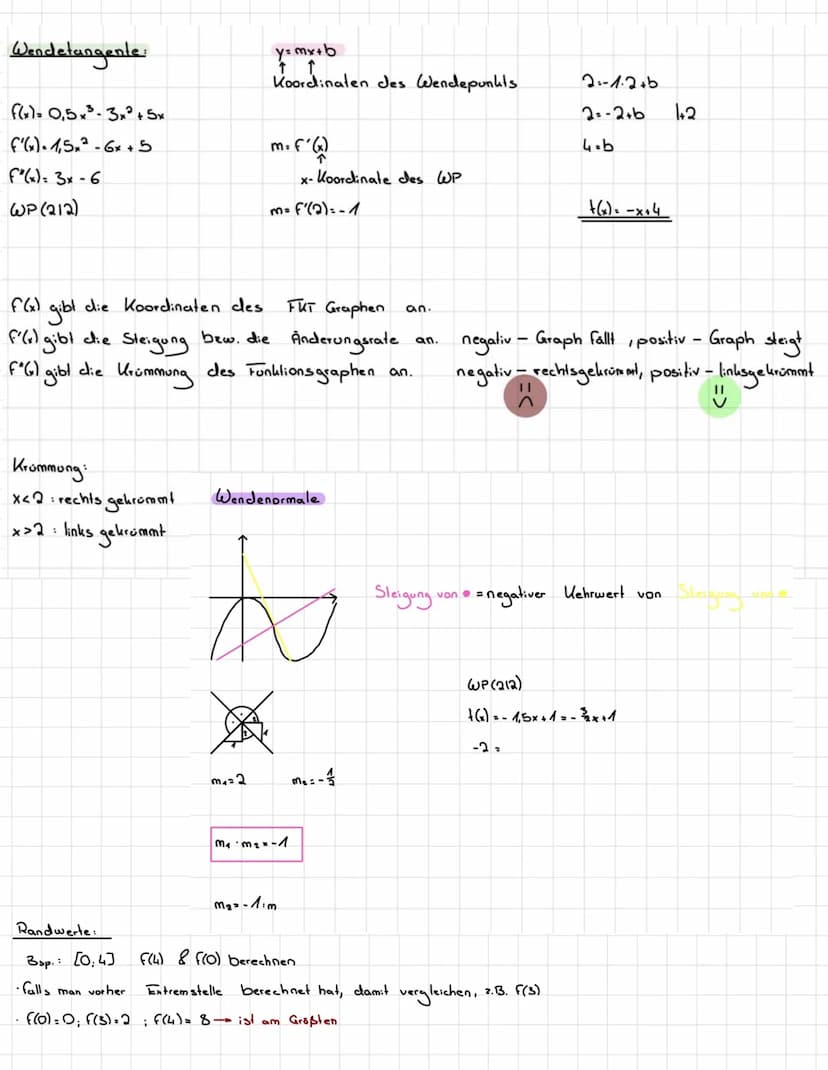 Wendetangente:
y=mx+b
↑ ↑
Koordinaten des Wendepunkts
2=-1·2+b
f(x)= 0,5x³-3x²+5x
2=-2+b |+2
f'(x)=1,5x²-6x+5
m=f'(x)
4=b
↑
f"(x)=3x-6
x-Koordinate des WP
WP(2|2)
m=f'(2)=-1
t(x)=-x+4
f(x) gibt die Koordinaten des FKT Graphen an.
f'(x) gibt die Steigung bzw. die Änderungsrate an. negativ – Graph fällt, positiv – Graph steigt
f"(x) gibt die Krümmung des Funktionsgraphen an. negativ – rechtsgekrümmt, positiv – linksgekrümmt
Krümmung:
x<2 : rechts gekrümmt
Wendenormale
x>2 : links gekrümmt
Steigung von • = negativer Kehrwert von Steigung von •
WP(2|2)
t(x)=-1,5x+1=-3/2x+1
-2=
m₁=2 m₂=-1/2
m₁·m₂=-1
m₂=-1:m
Randwerte:
Bsp.: [0;4] f(4) & f(0) berechnen
· falls man vorher Extremstelle berechnet hat, damit vergleichen, z.B. f(3)
· f(0)=0; f(3)=2 ; f(4)= 8 → ist am Größten